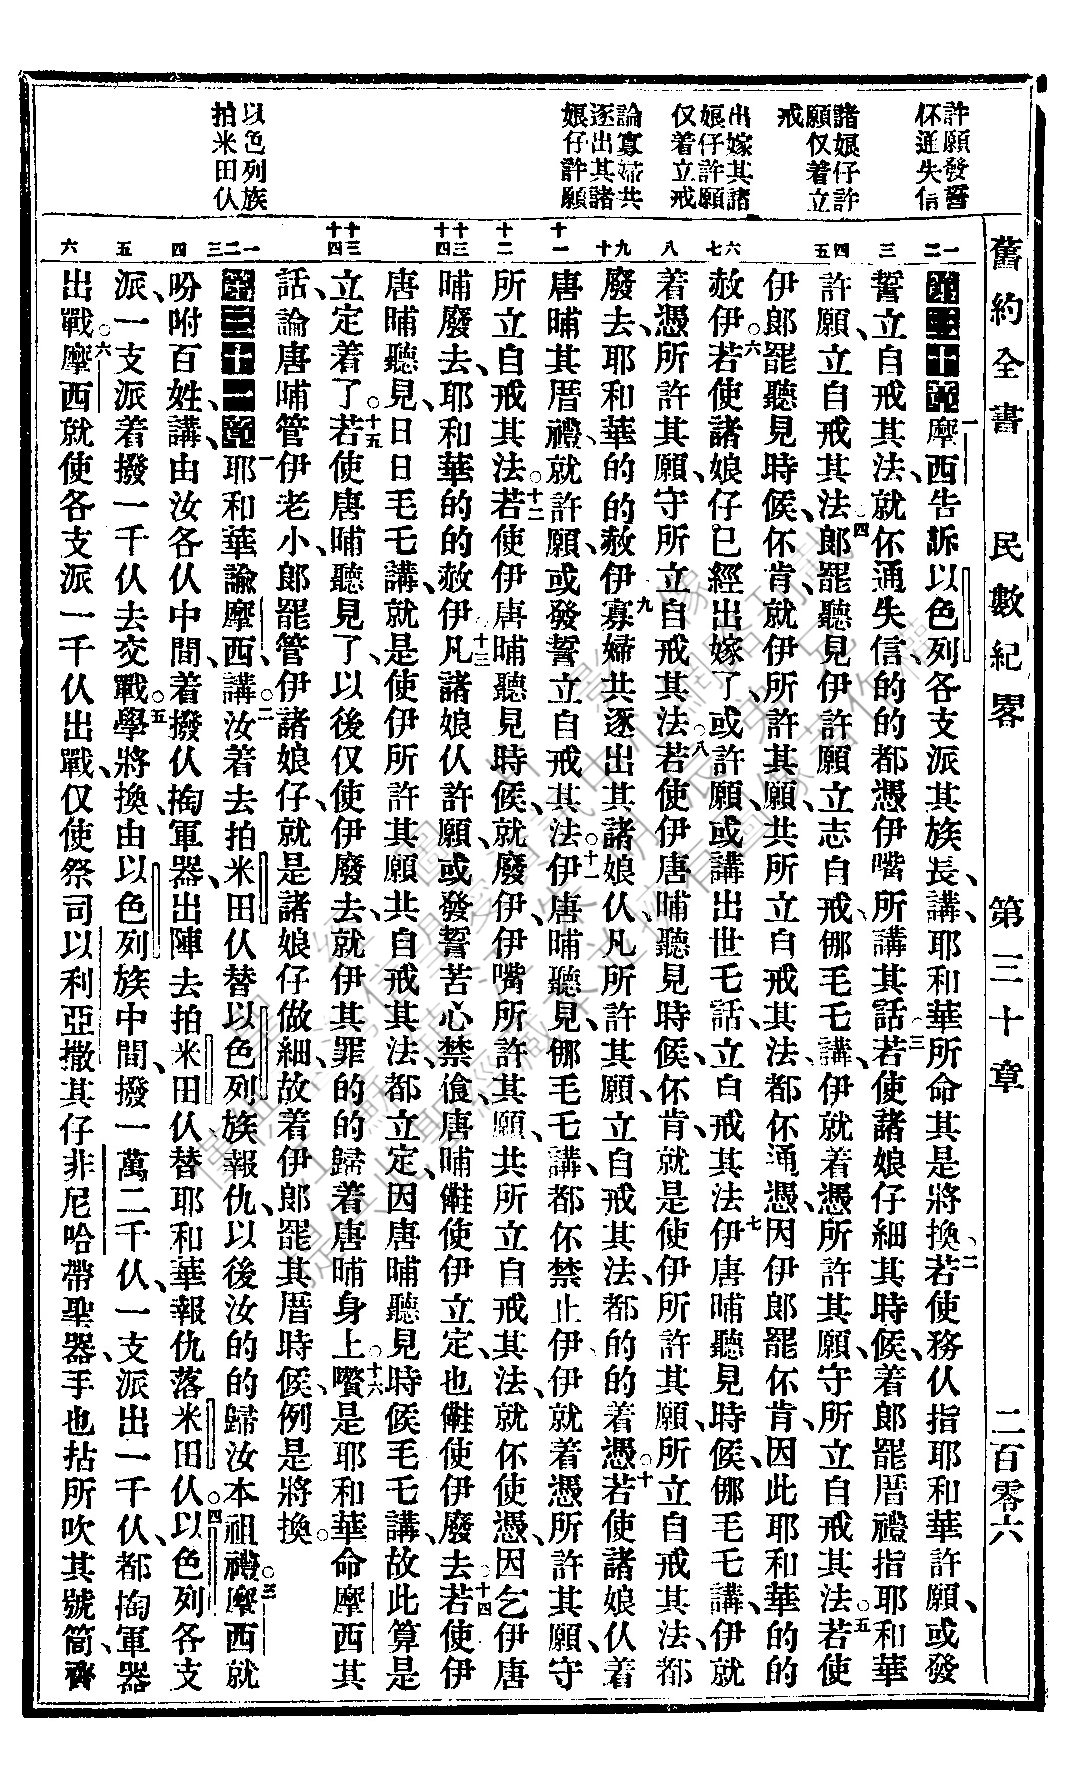 舊約全書 民數紀畧 第三十章 二百零六
許願發誓
怀通失信
諸娘仔許
願仅着立
戒
出嫁其諸
娘仔許願
仅着立戒
論寡婦共
逐出其諸
娘仔許願
以色列族
拍米田仈
第三十章 一摩西告訴以色列各支派其族長講、耶和華所命其是將換、二若使務仈指耶和華許願、或發
誓立自戒其法、就怀通失信、的的都憑伊嘴所講其話。三若使諸娘仔細其時候、着郎罷厝禮指耶和華
許願、立自戒其法、四郎罷聽見伊許願立志自戒、哪乇乇講、伊就着憑所許其願、守所立自戒其法。五若使
伊郎罷聽見時候、怀肯、就伊所許其願、共所立自戒其法、都怀通憑、因伊郎罷怀肯、因此耶和華的的
赦伊。六若使諸娘仔已經出嫁了、或許願、或講出世乇話、立自戒其法、七伊唐晡聽見時候、哪乇乇講、伊就
着憑所許其願、守所立自戒其法。八若使伊唐晡聽見時候、怀肯、就是使伊所許其願、所立自戒其法、都
廢去、耶和華的的赦伊。九寡婦共逐出其諸娘仈、凡所許其願、立自戒其法、都的的着憑。十若使諸娘仈着
唐晡其厝禮、就許願、或發誓立自戒其法、十一伊唐晡聽見、哪乇乇講、都怀禁止伊、伊就着憑所許其願、守
所立自戒其法。十二若使伊唐晡聽見時候、就廢伊、伊嘴所許其願、共所立自戒其法、就怀使憑、因乞伊唐
晡廢去、耶和華的的赦伊。十三凡諸娘仈許願或發誓苦心禁食、唐晡能使伊立定、也能使伊廢去。十四若使伊
唐晡聽見、日日乇乇講、就是使伊所許其願共自戒其法、都立定、因唐晡聽見時候乇乇講、故此算是
立定着了。十五若使唐晡聽見了、以後仅使伊廢去、就伊其罪的的歸着唐晡身上。十六嚽是耶和華命摩西其
話、論唐晡管伊老小、郎罷管伊諸娘仔、就是諸娘仔做細、故着伊郎罷其厝時候、例是將換。
第三十一章 一耶和華諭摩西、講、二汝着去拍米田仈替以色列族報仇、以後汝的的歸汝本祖禮。三摩西就
吩咐百姓、講、由汝各仈中間、着撥仈掏軍器、出陣去拍米田仈、替耶和華報仇落米田仈。四以色列各支
派、一支派着撥一千仈去交戰。五學將換由以色列族中間、撥一萬二千仈、一支派出一千仈、都掏軍器
出戰。六摩西就使各支派一千仈出戰、仅使祭司以利亞撒其仔非尼哈帶聖器、手也拈所吹其號筒、齊